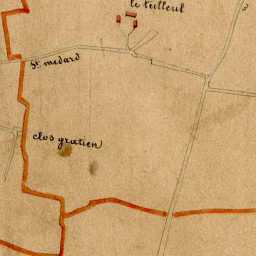 le tilleul
St. medard
clos gratien